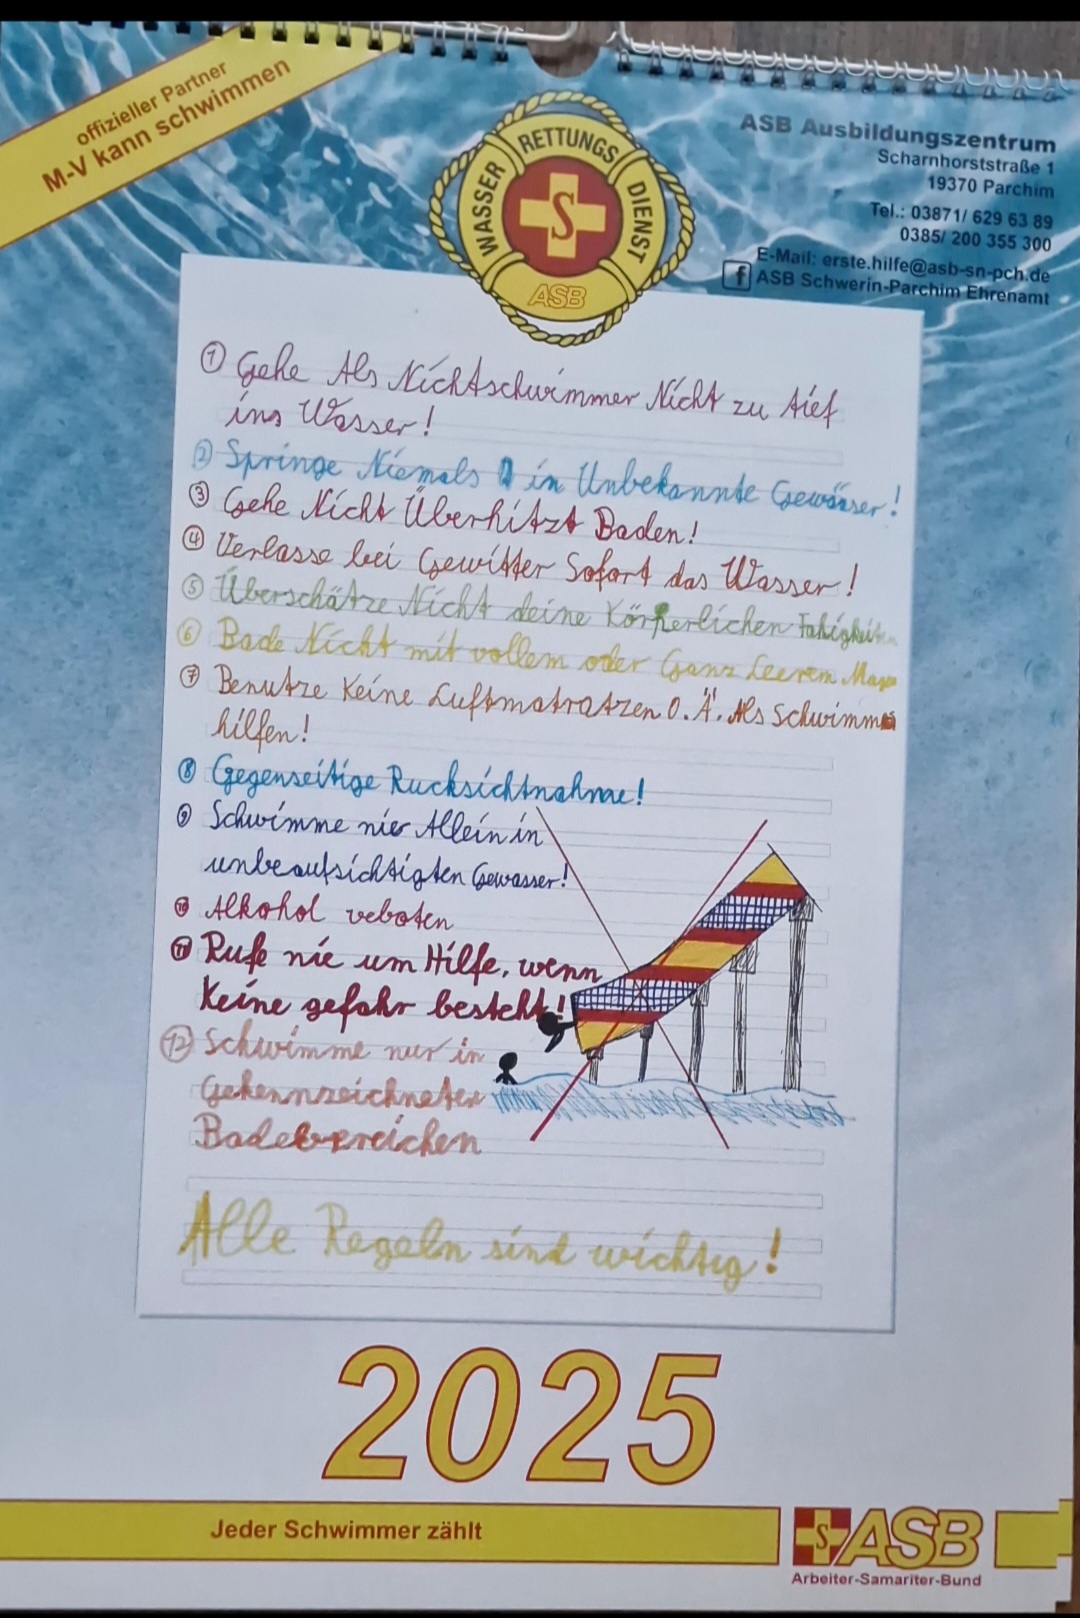 offizieller Partner
M-V kann schwimmen
WASSER RETTUNGS DIENST
S
ASB
ASB Ausbildungszentrum
Scharnhorststraße 1
19370 Parchim
Tel.: 03871/ 629 63 89
0385/ 200 355 300
E-Mail: erste.hilfe@asb-sn-pch.de
f ASB Schwerin-Parchim Ehrenamt
① Gehe Als Nichtschwimmer Nicht zu tief
ins Wasser!
② Springe Niemals in Unbekannte Gewässer!
③ Gehe Nicht Überhitzt Baden!
④ Verlasse bei Gewitter Sofort das Wasser!
⑤ Überschätze Nicht deine Körperlichen Fähigkeiten
⑥ Bade Nicht mit vollem oder Ganz Leerem Magen
⑦ Benutze Keine Luftmatratzen O.Ä. Als Schwimm
hilfen!
⑧ Gegenseitige Rucksichtnahme!
⑨ Schwimme nie Allein in
unbeaufsichtigten Gewasser!
⑩ Alkohol veboten
⑪ Rufe nie um Hilfe, wenn
Keine gefahr besteht!
⑫ Schwimme nur in
Gekennzeichneten
Badebereichen
Alle Regeln sind wichtig!
2025
Jeder Schwimmer zählt
S ASB
Arbeiter-Samariter-Bund